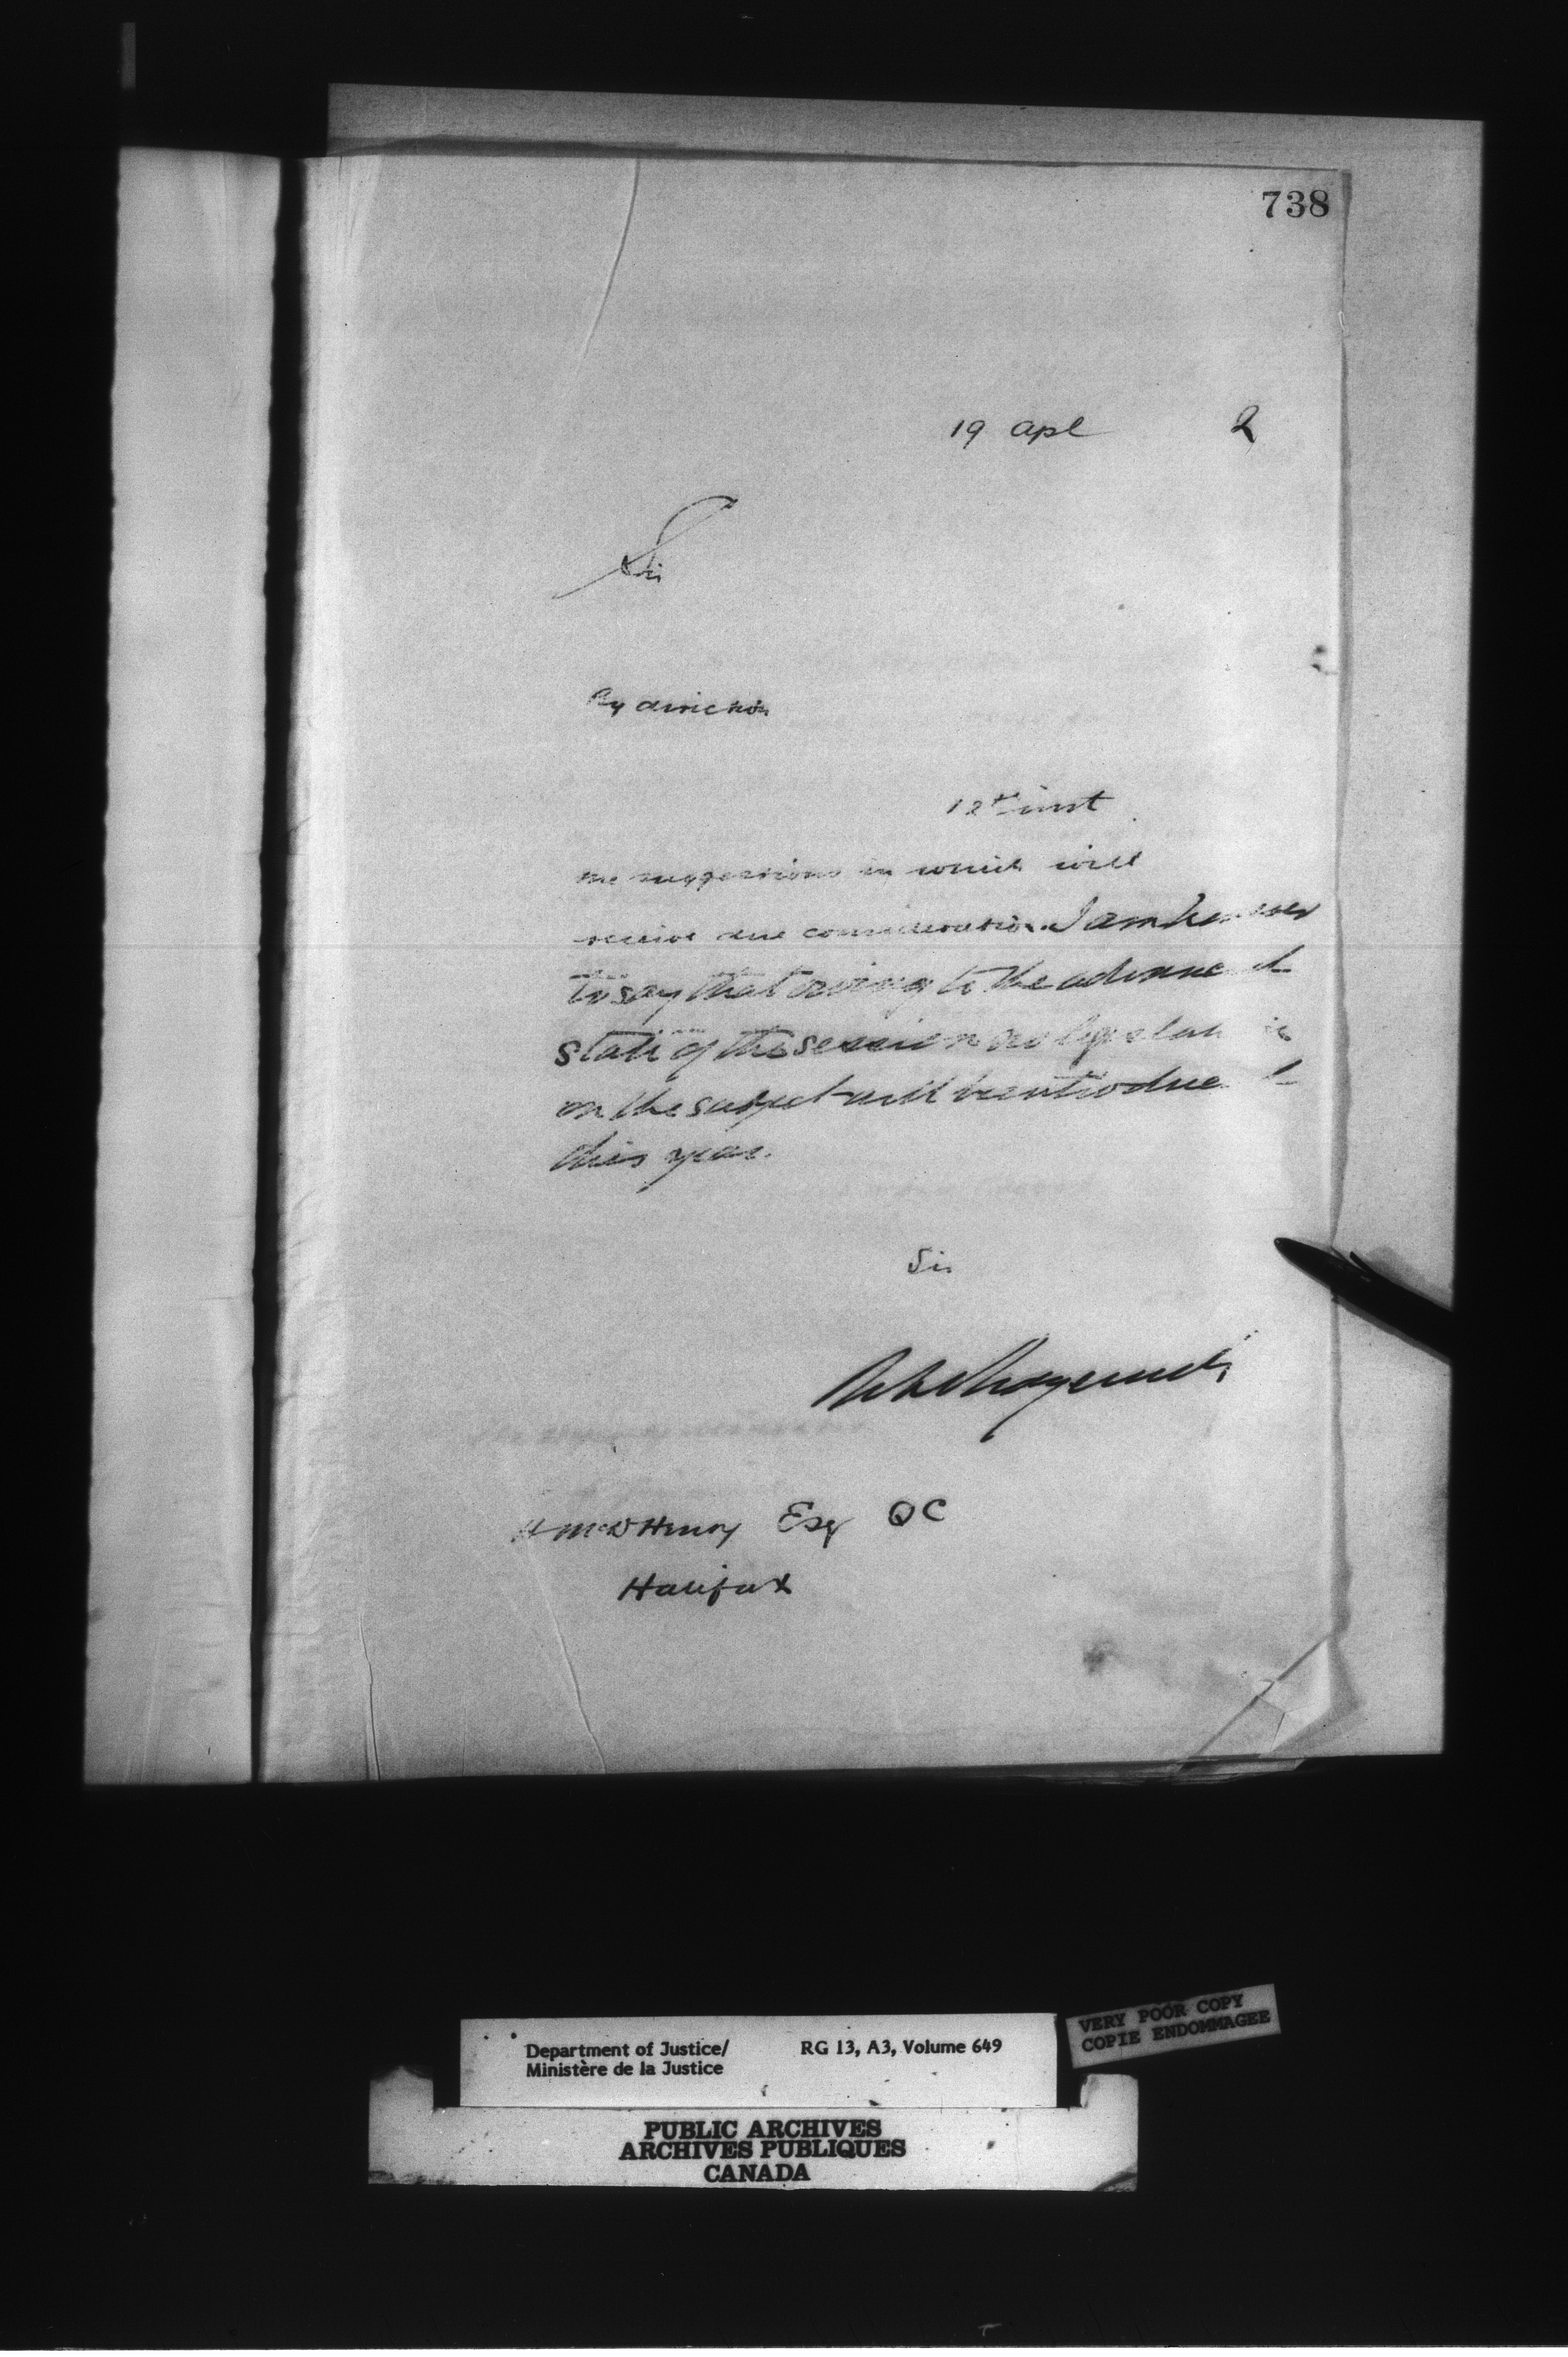 738
19 Apl 2
Sir
By direction
12th inst
the suggestions in which will
receive due consideration. I am however
to say that owing to the advanced
state of the session no legislation
on the subject will be introduced
this year.
Sir
H McD Henry Esq QC
Halifax
VERY POOR COPY
COPIE ENDOMMAGEE
Department of Justice/ RG 13, A3, Volume 649
Ministère de la Justice
PUBLIC ARCHIVES
ARCHIVES PUBLIQUES
CANADA